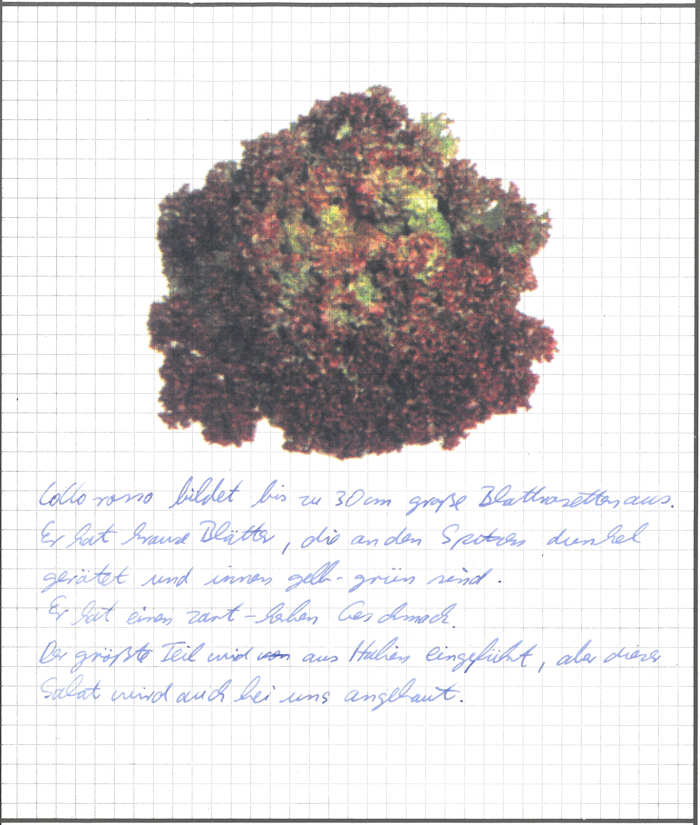 Lollo rosso bildet bis zu 30 cm große Blattrosetten aus.
Er hat krause Blätter, die an den Spitzen dunkel
gerötet und innen gelb-grün sind.
Er hat einen zart-herben Geschmack.
Der größte Teil wird von aus Italien eingeführt, aber dieser
Salat wird auch bei uns angebaut.